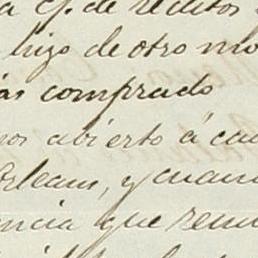 a q.e de reditos
hizo de otro mo
as comprado
nos abierto á cau
Orleans, y cuan
encia que remi